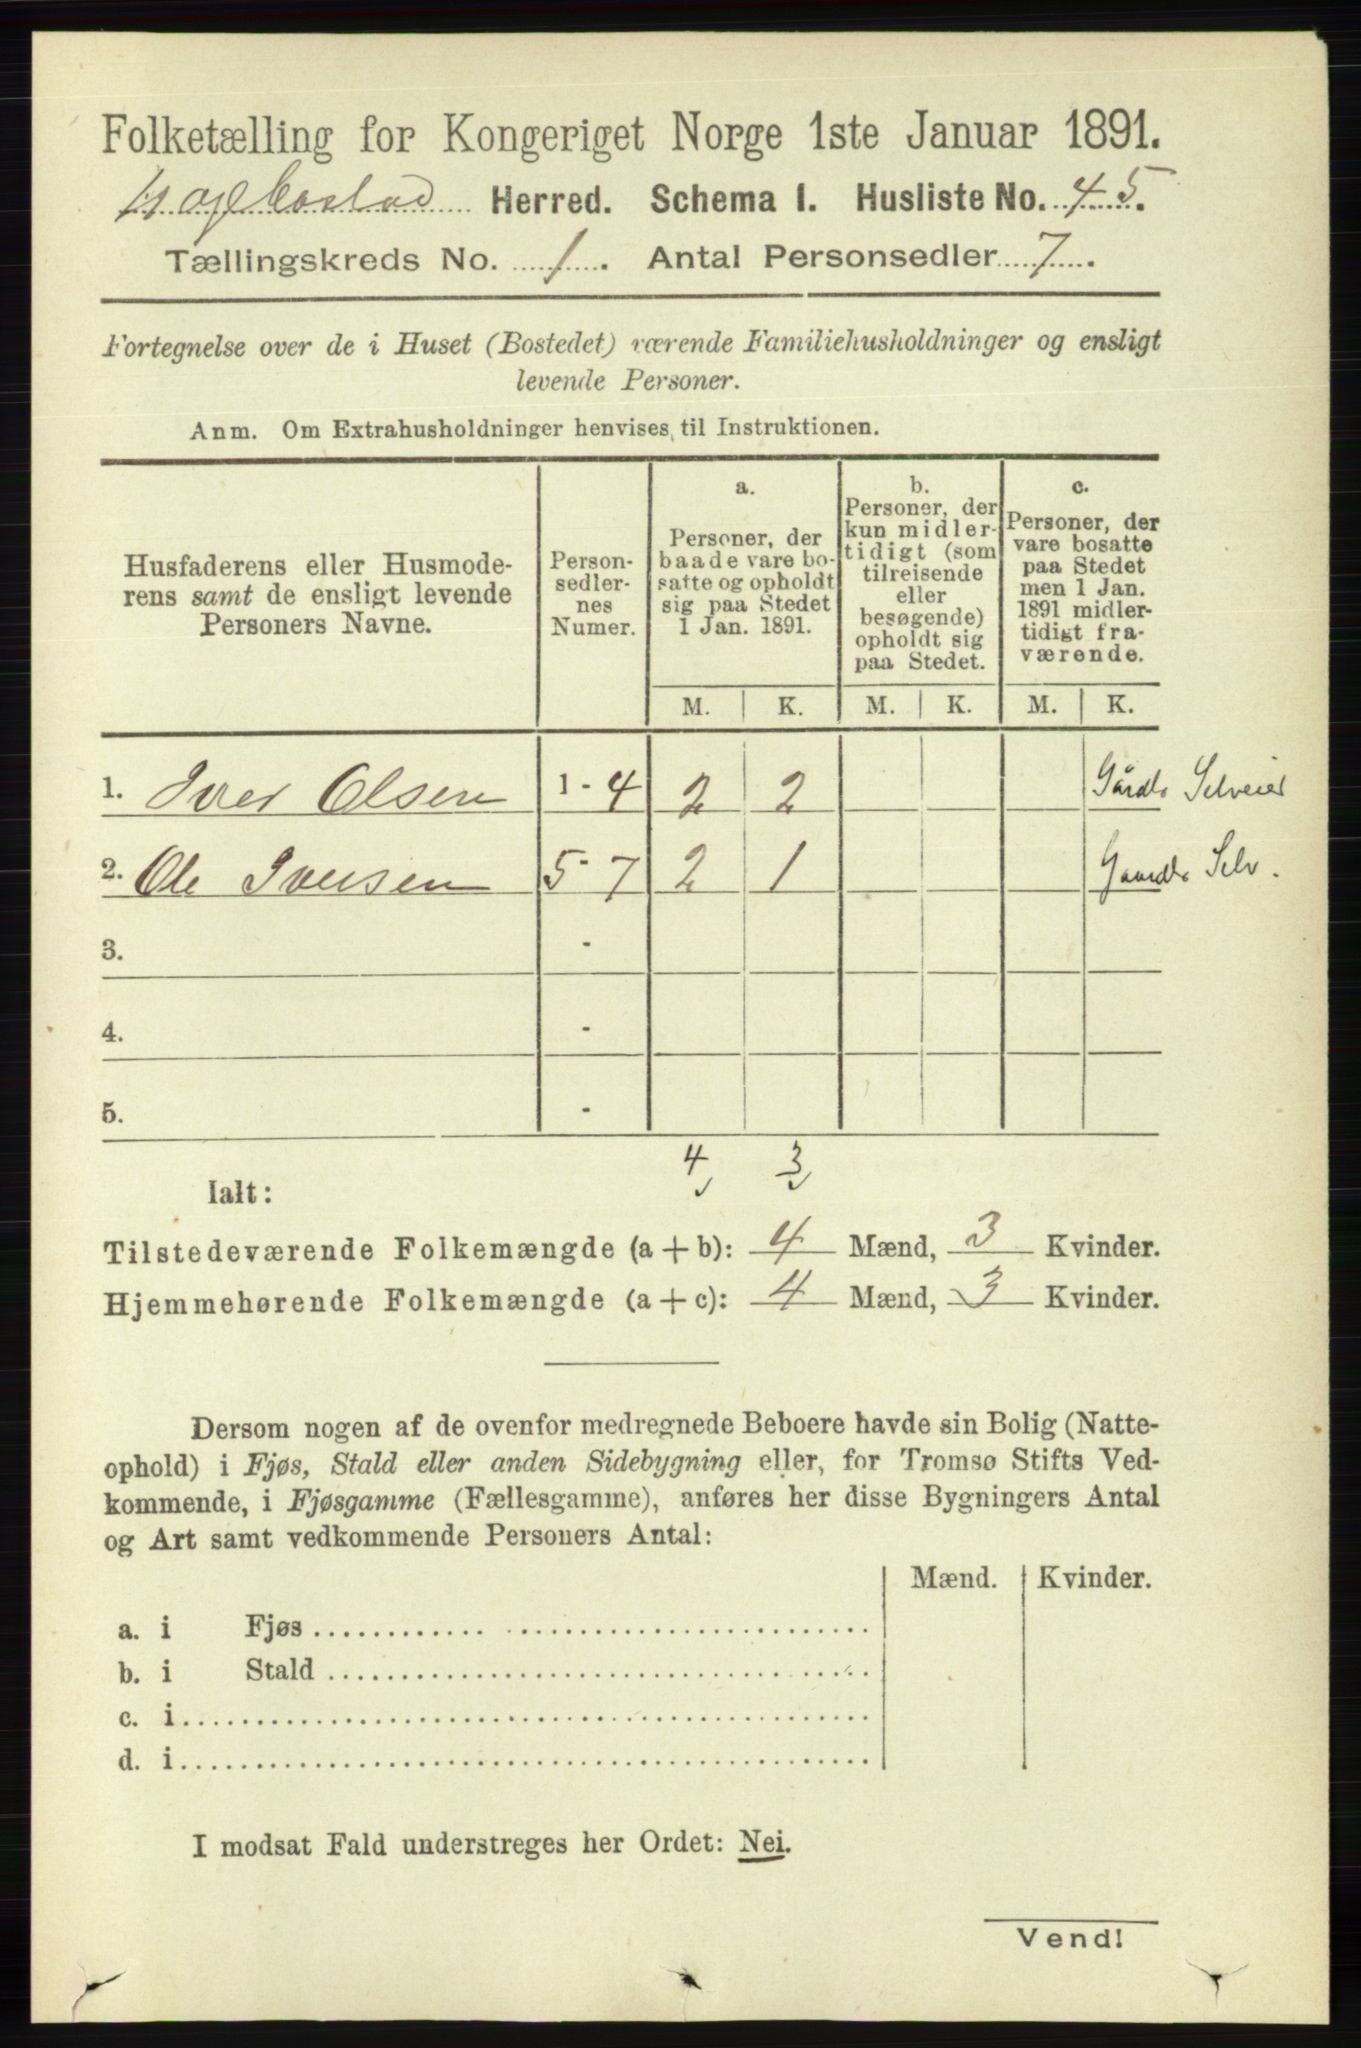 Folketælling for Kongeriget Norge 1ste Januar 1891.
Hægebostad Herred. Schema I. Husliste No. 45.
Tællingskreds No. 1. Antal Personsedler 7.
Fortegnelse over de i Huset (Bostedet) værende Familiehusholdninger og ensligt
levende Personer.
Anm. Om Extrahusholdninger henvises til Instruktionen.
Husfaderens eller Husmode-
rens samt de ensligt levende
Personers Navne.
Person-
sedler-
nes
Numer.
a.
Personer, der
baade vare bo-
satte og opholdt
sig paa Stedet
1 Jan. 1891.
b.
Personer, der
kun midler-
tidigt (som
tilreisende
eller
besøgende)
opholdt sig
paa Stedet.
c.
Personer, der
vare bosatte
paa Stedet
men 1 Jan.
1891 midler-
tidigt fra-
værende.
M. K. M. K. M. K.
1. Iver Olsen 1 - 4 2 2 Gårdb Selveier
2. Ole Iversen 5 - 7 2 1 Gaardb Selv.
3. -
4. -
5. -
4 3
Ialt:
Tilstedeværende Folkemængde (a + b): 4 Mænd, 3 Kvinder.
Hjemmehørende Folkemængde (a + c): 4 Mænd, 3 Kvinder.
Dersom nogen af de ovenfor medregnede Beboere havde sin Bolig (Natte-
ophold) i Fjøs, Stald eller anden Sidebygning eller, for Tromsø Stifts Ved-
kommende, i Fjøsgamme (Fællesgamme), anføres her disse Bygningers Antal
og Art samt vedkommende Personers Antal:
Mænd. Kvinder.
a. i Fjøs
b. i Stald
c. i
d. i
I modsat Fald understreges her Ordet: Nei.
Vend!